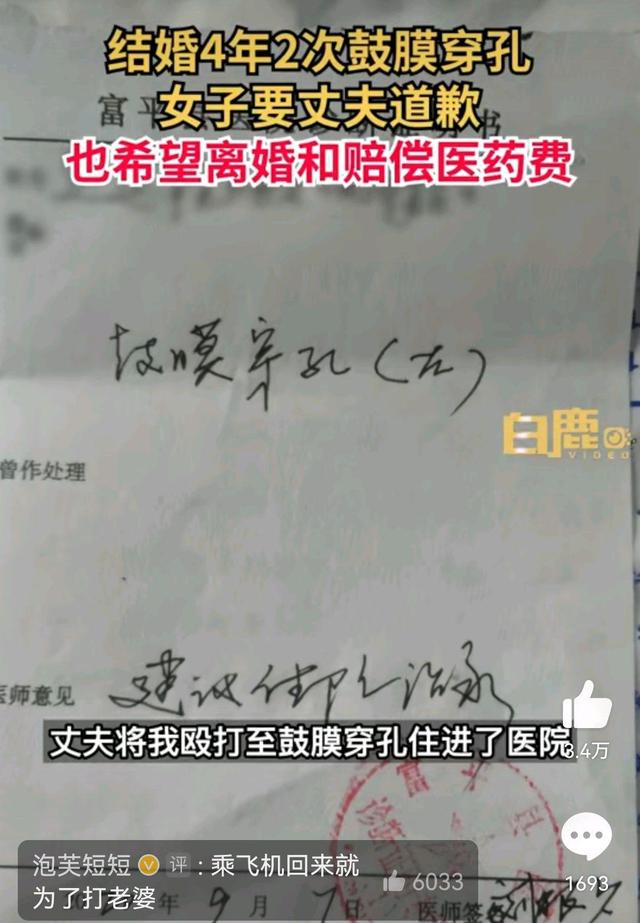 结婚4年2次鼓膜穿孔
女子要丈夫道歉
也希望离婚和赔偿医药费
富平
书
鼓膜穿孔(左)
白鹿
VIDEO
曾作处理
医师意见
建议住院治疗
丈夫将我殴打至鼓膜穿孔住进了医院
3.4万
泡芙短短 评:乘飞机回来就
为了打老婆
6033
1693
年9月7日
医师签